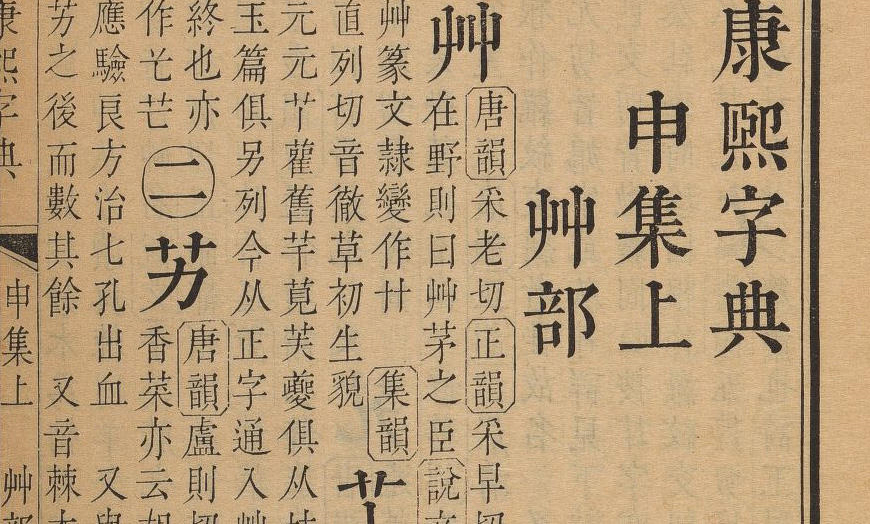 康熙字典
申集上
艸部
艸
唐韻采老切正韻采早切
在野則曰艸茅之臣說
艸篆文隸變作廾 集韻
直列切音徹草初生貌
元元艹雚舊芊莧芙虁俱从
玉篇俱另列今从正字通入艸
終也亦
作芒
㊁艻
唐韻盧則切
香菜亦云如
應驗良方治七孔出血 又與
芳之後而數其餘 又音棘
康熙字典 申集上 艸部